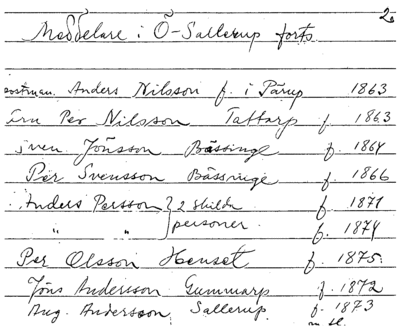 2.
Meddelare i Ö-Sallerup forts.
postman. Anders Nilsson f. i Pärup 1863
Per Nilsson Tattarp f. 1863
Sven Jönsson Bässinge f. 1864
Per Svensson Bässinge f. 1866
Anders Persson } 2 skilda f. 1871
" " } personer f. 1874
Per Olsson Heuset f. 1875
Jöns Andersson Gummarp f. 1872
Aug. Andersson, Sallerup f. 1873
m fl.